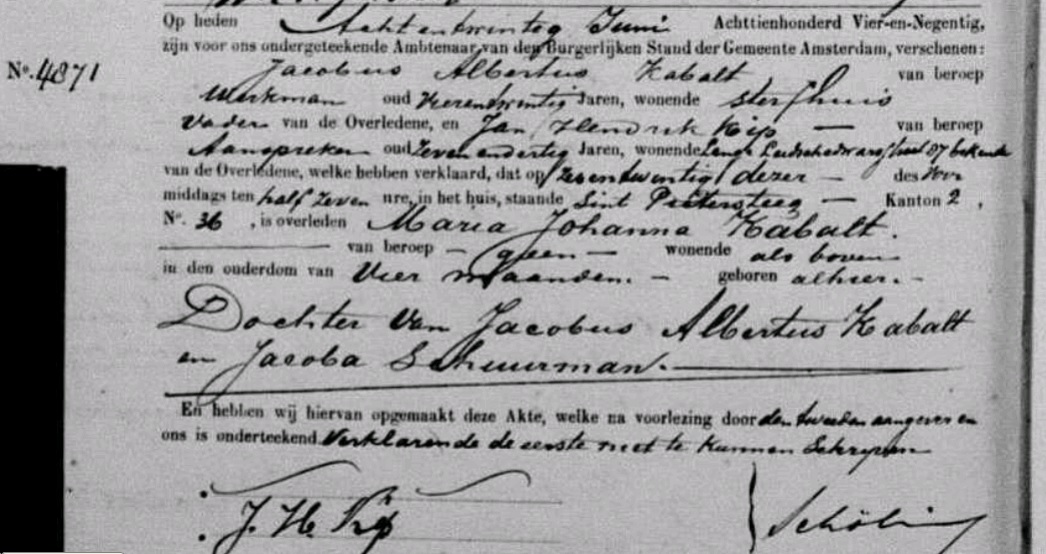 Op heden Achtentwintig Juni Achttienhonderd Vier-en-Negentig,
zijn voor ons ondergeteekende Ambtenaar van den Burgerlijken Stand der Gemeente Amsterdam, verschenen:
No. 4871
Jacobus Albertus Kabalt van beroep
Werkman oud Vierentwintig Jaren, wonende sterfhuis
Vader van de Overledene, en Jan Hendrik Kip — van beroep
Aanspreker oud Zevenendertig Jaren, wonende Lange Leidschedwarsstraat 87 bekende
van de Overledene, welke hebben verklaard, dat op Zevenentwintig dezer — des Voor
middags ten half Zeven ure, in het huis, staande Sint Pietersteeg — Kanton 2,
No. 36, is overleden Maria Johanna Kabalt.
van beroep — geen — wonende als boven
in den ouderdom van Vier maanden. — geboren alhier. —
Dochter van Jacobus Albertus Kabalt
en Jacoba Scheuurman.
En hebben wij hiervan opgemaakt deze Akte, welke na voorlezing door den tweeden aangever en
ons is onderteekend. Verklarende de eerste niet te kunnen Schrijven
J. H. Kip